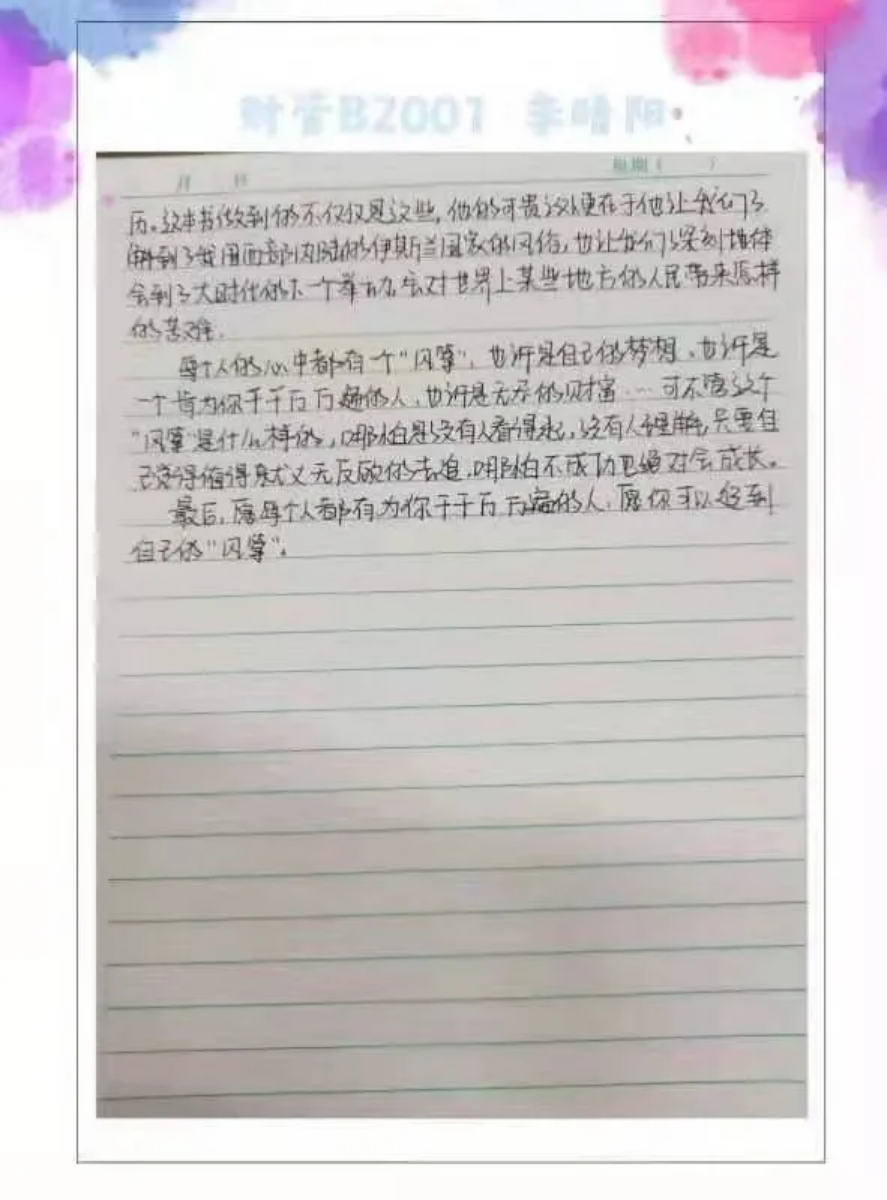 财管B2001 李晴阳
月 日 星期( )
历。这本书做到的不仅仅是这些,他的可贵之处更在于他让我们了
解到了我国西部内陆的伊斯兰国家的风俗,也让我们深刻地体
会到了大时代的一个举动会对世界上某些地方的人民带来怎样
的苦难.
每个人的心中都有一个“风筝”,也许是自己的梦想、也许是
一个肯为你千千万万遍的人,也许是无尽的财富……可不管这个
“风筝”是什么样的,哪怕是没有人看得起,没有人理解,只要自
己觉得值得就义无反顾的去追,哪怕不成功也绝对会成长。
最后,愿每个人都有为你千千万万遍的人,愿你可以追到
自己的“风筝”。